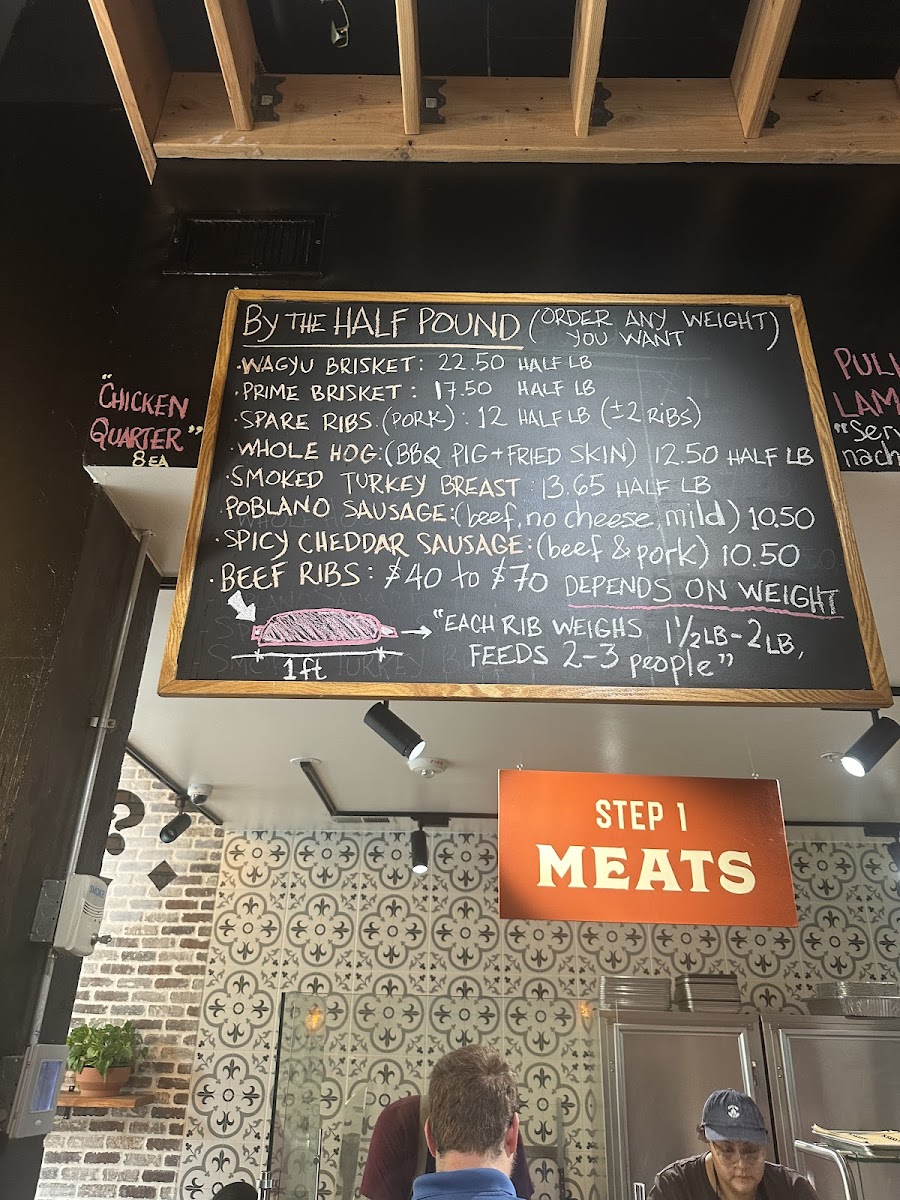 BY THE HALF POUND (ORDER ANY WEIGHT)
YOU WANT
·WAGYU BRISKET: 22.50 HALF LB
·PRIME BRISKET: 17.50 HALF LB
·SPARE RIBS (PORK): 12 HALF LB (±2 RIBS)
·WHOLE HOG:(BBQ PIG+FRIED SKIN) 12.50 HALF LB
·SMOKED TURKEY BREAST 13.65 HALF LB
·POBLANO SAUSAGE:(beef, no cheese, mild) 10.50
·SPICY CHEDDAR SAUSAGE:(beef & pork) 10.50
·BEEF RIBS: $40 to $70 DEPENDS ON WEIGHT
"EACH RIB WEIGHS 1½LB-2LB,
FEEDS 2-3 people"
1ft
"CHICKEN
QUARTER"
8 EA
PULL
LAM
"Serv
nach
STEP 1
MEATS
?